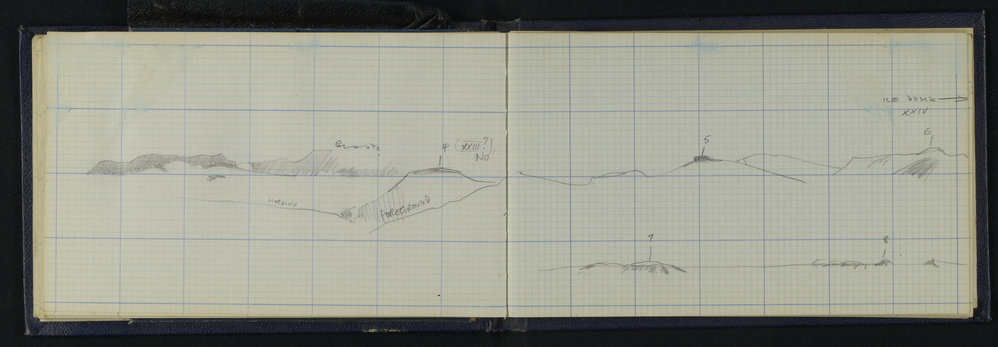 4 (XXIII?)
NO
MORAINE
FOREGROUND
5
ICE DOME
XXIV
6
7
8